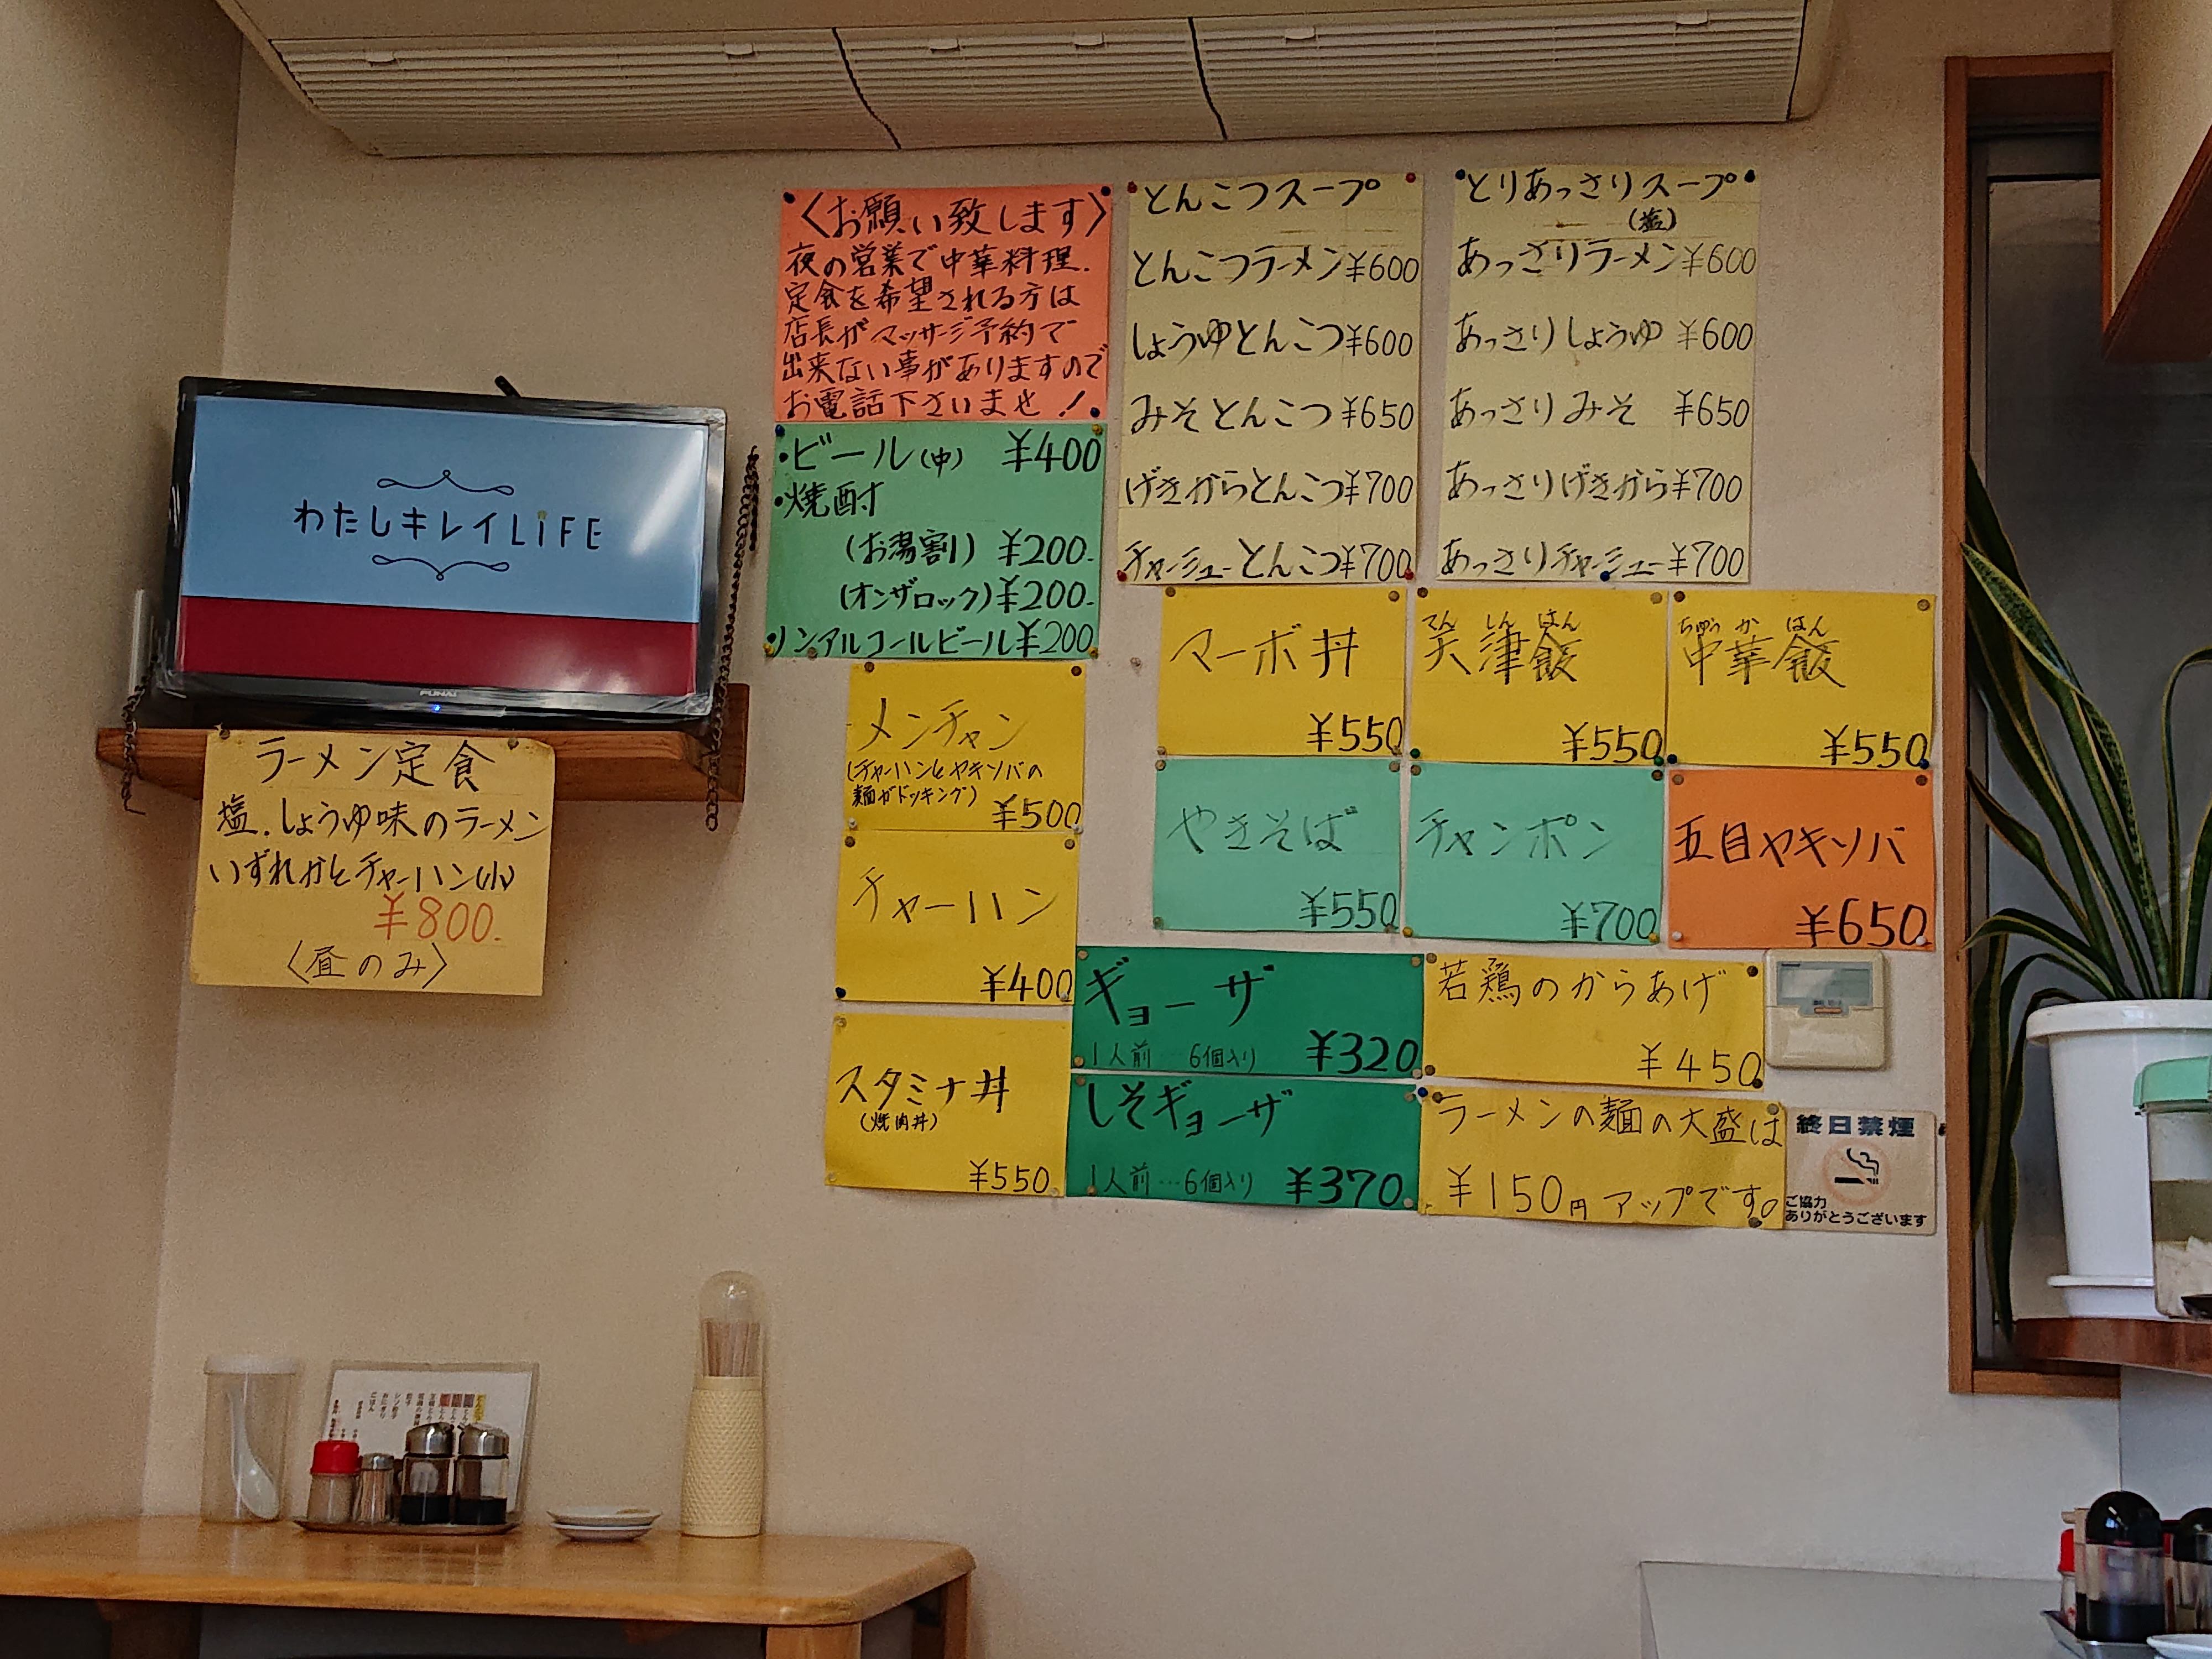 〈お願い致します〉
夜の営業で中華料理.
定食を希望される方は
店長がマッサージ予約で
出来ない事がありますので
お電話下さいませ!
・ビール(中) ¥400
・焼酎
(お湯割) ¥200-
(オンザロック)¥200-
・ノンアルコールビール¥200
とんこつスープ
とんこつラーメン¥600
しょうゆとんこつ¥600
みそとんこつ¥650
げきからとんこつ¥700
チャーシューとんこつ¥700
とりあっさりスープ
(塩)
あっさりラーメン¥600
あっさりしょうゆ ¥600
あっさりみそ ¥650
あっさりげきから¥700
あっさりチャーシュー¥700
わたしキレイLiFE
FUNAI
ラーメン定食
塩.しょうゆ味のラーメン
いずれかとチャーハン(小)
¥800-
〈昼のみ〉
メンチャン
(チャーハンとヤキソバの
麺がドッキング)
¥500
チャーハン
¥400
スタミナ丼
(焼肉丼)
¥550
マーボ丼
¥550
てん しん はん
天津飯
¥550
ちゅう か はん
中華飯
¥550
やきそば
¥550
チャンポン
¥700
五目ヤキソバ
¥650
ギョーザ
1人前…6個入り ¥320
しそギョーザ
1人前…6個入り ¥370
若鶏のからあげ
¥450
ラーメンの麺の大盛は
¥150円アップです。
終日禁煙
ご協力
ありがとうございます